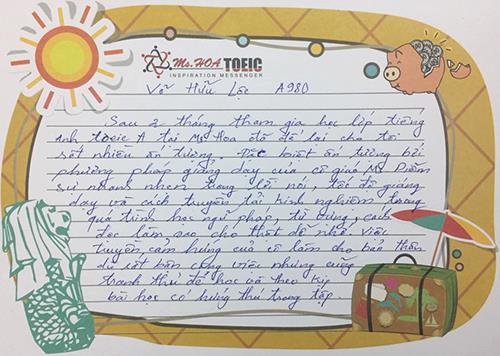 Ms.HOA TOEIC
INSPIRATION MESSENGER
Võ Hữu Lộc A980
Sau 2 tháng tham gia học lớp tiếng
Anh toeic A tại Ms Hoa đã để lại cho tôi
rất nhiều ấn tượng. Đặc biệt ấn tượng bởi
phương pháp giảng dạy của cô giáo Ms Diễm
sự nhanh nhẹn trong lời nói, tốc độ giảng
dạy và cách truyền tải kinh nghiệm trong
quá trình học ngữ pháp, từ vựng, cách
đọc làm sao cho thật dễ nhớ. Việc
truyền cảm hứng của cô làm cho bản thân
dù rất bận công việc nhưng cũng
tranh thủ để học và theo kịp
bài học có hứng thú trong tập.